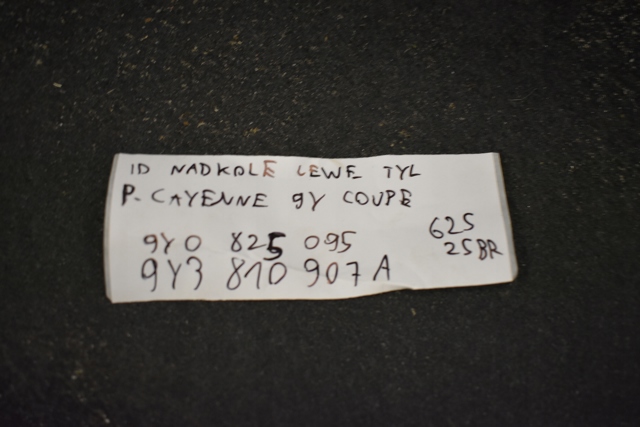 ID NADKOLE LEWE TYL
P. CAYENNE 9Y COUPE
9Y0 825 095
9Y3 810 907 A
625
25BR